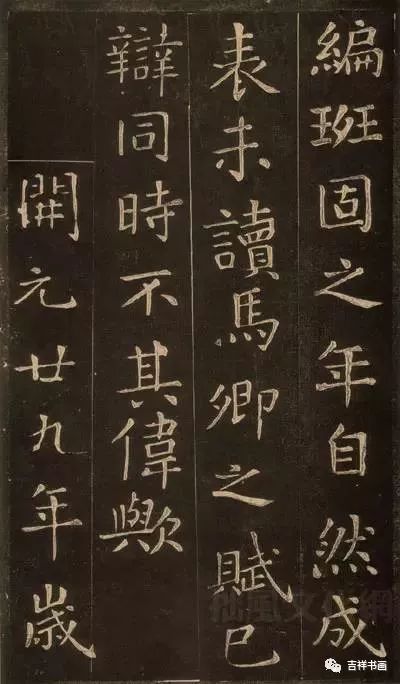 編班固之年自然成
表未讀馬卿之賦已
辯同時不其偉歟
開元廿九年歲
吉祥书画